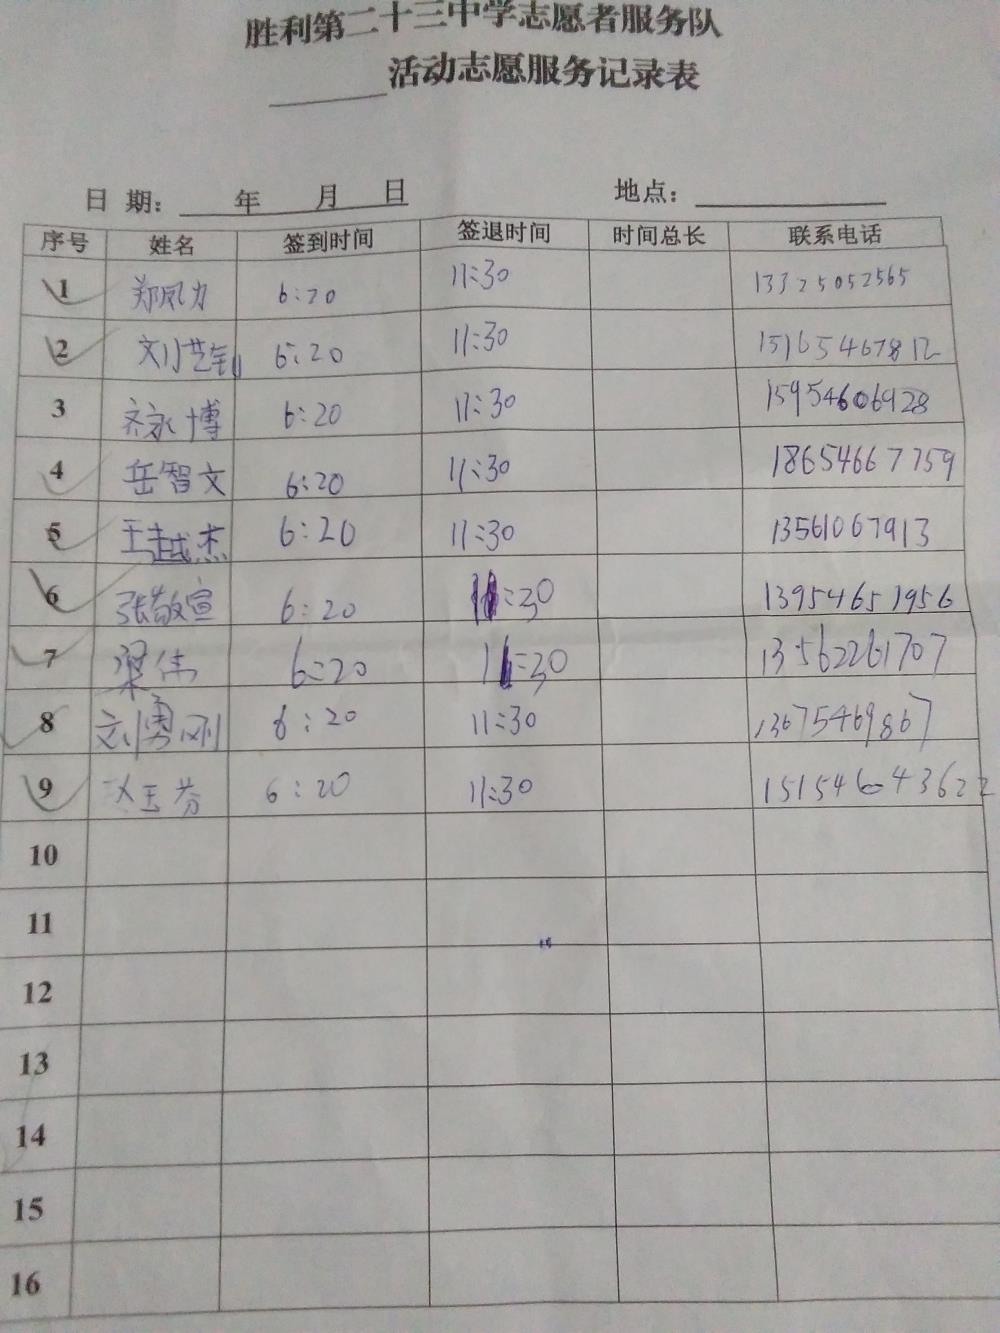 胜利第二十三中学志愿者服务队
______活动志愿服务记录表
日 期：____年____月____日 地点：__________
序号 姓名 签到时间 签退时间 时间总长 联系电话
1 郑凤力 6:20 11:30 13325052565
2 刘艺钊 6:20 11:30
3 齐永博 6:20 11:30 15954606928
4 岳智文 6:20 11:30 18654667759
5 王越杰 6:20 11:30 13561067913
6 张敬宣 6:20 11:30 13954651956
7 梁伟 6:20 11:30 13562261707
8 刘勇刚 6:20 11:30 13675469867
9 玉芬 6:20 11:30
10
11
12
13
14
15
16